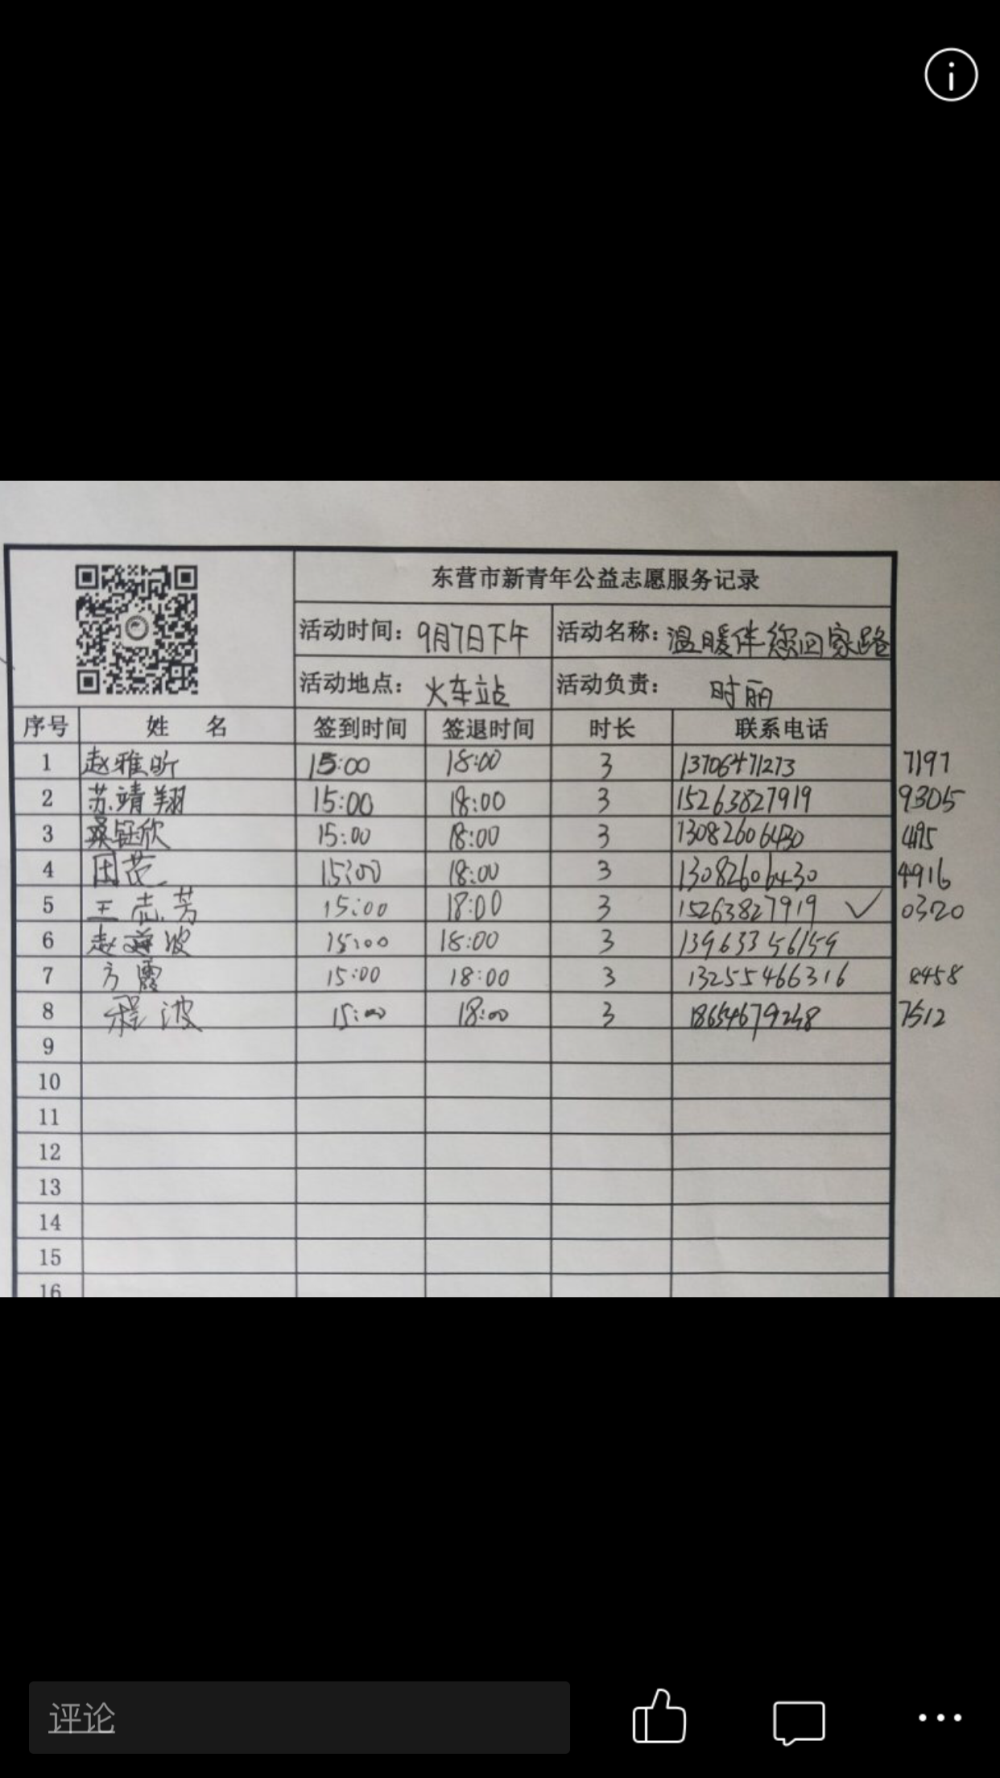 东营市新青年公益志愿服务记录
活动时间：9月7日下午 活动名称：温暖伴您回家路
活动地点：火车站 活动负责：时丽
序号 姓 名 签到时间 签退时间 时长 联系电话
1 赵雅昕 15:00 18:00 3 13706471273 7197
2 苏靖翔 15:00 18:00 3 15263827919 9305
3 桑钰欣 15:00 18:00 3 13082606430 495
4 田范 15:00 18:00 3 13082606430 4916
5 王志芳 15:00 18:00 3 15263827919 ✓ 0320
6 赵 波 15:00 18:00 3 13963356159
7 方霞 15:00 18:00 3 13255466316 8458
8 程波 15:00 18:00 3 18654679248 7512
9
10
11
12
13
14
15
16
评论